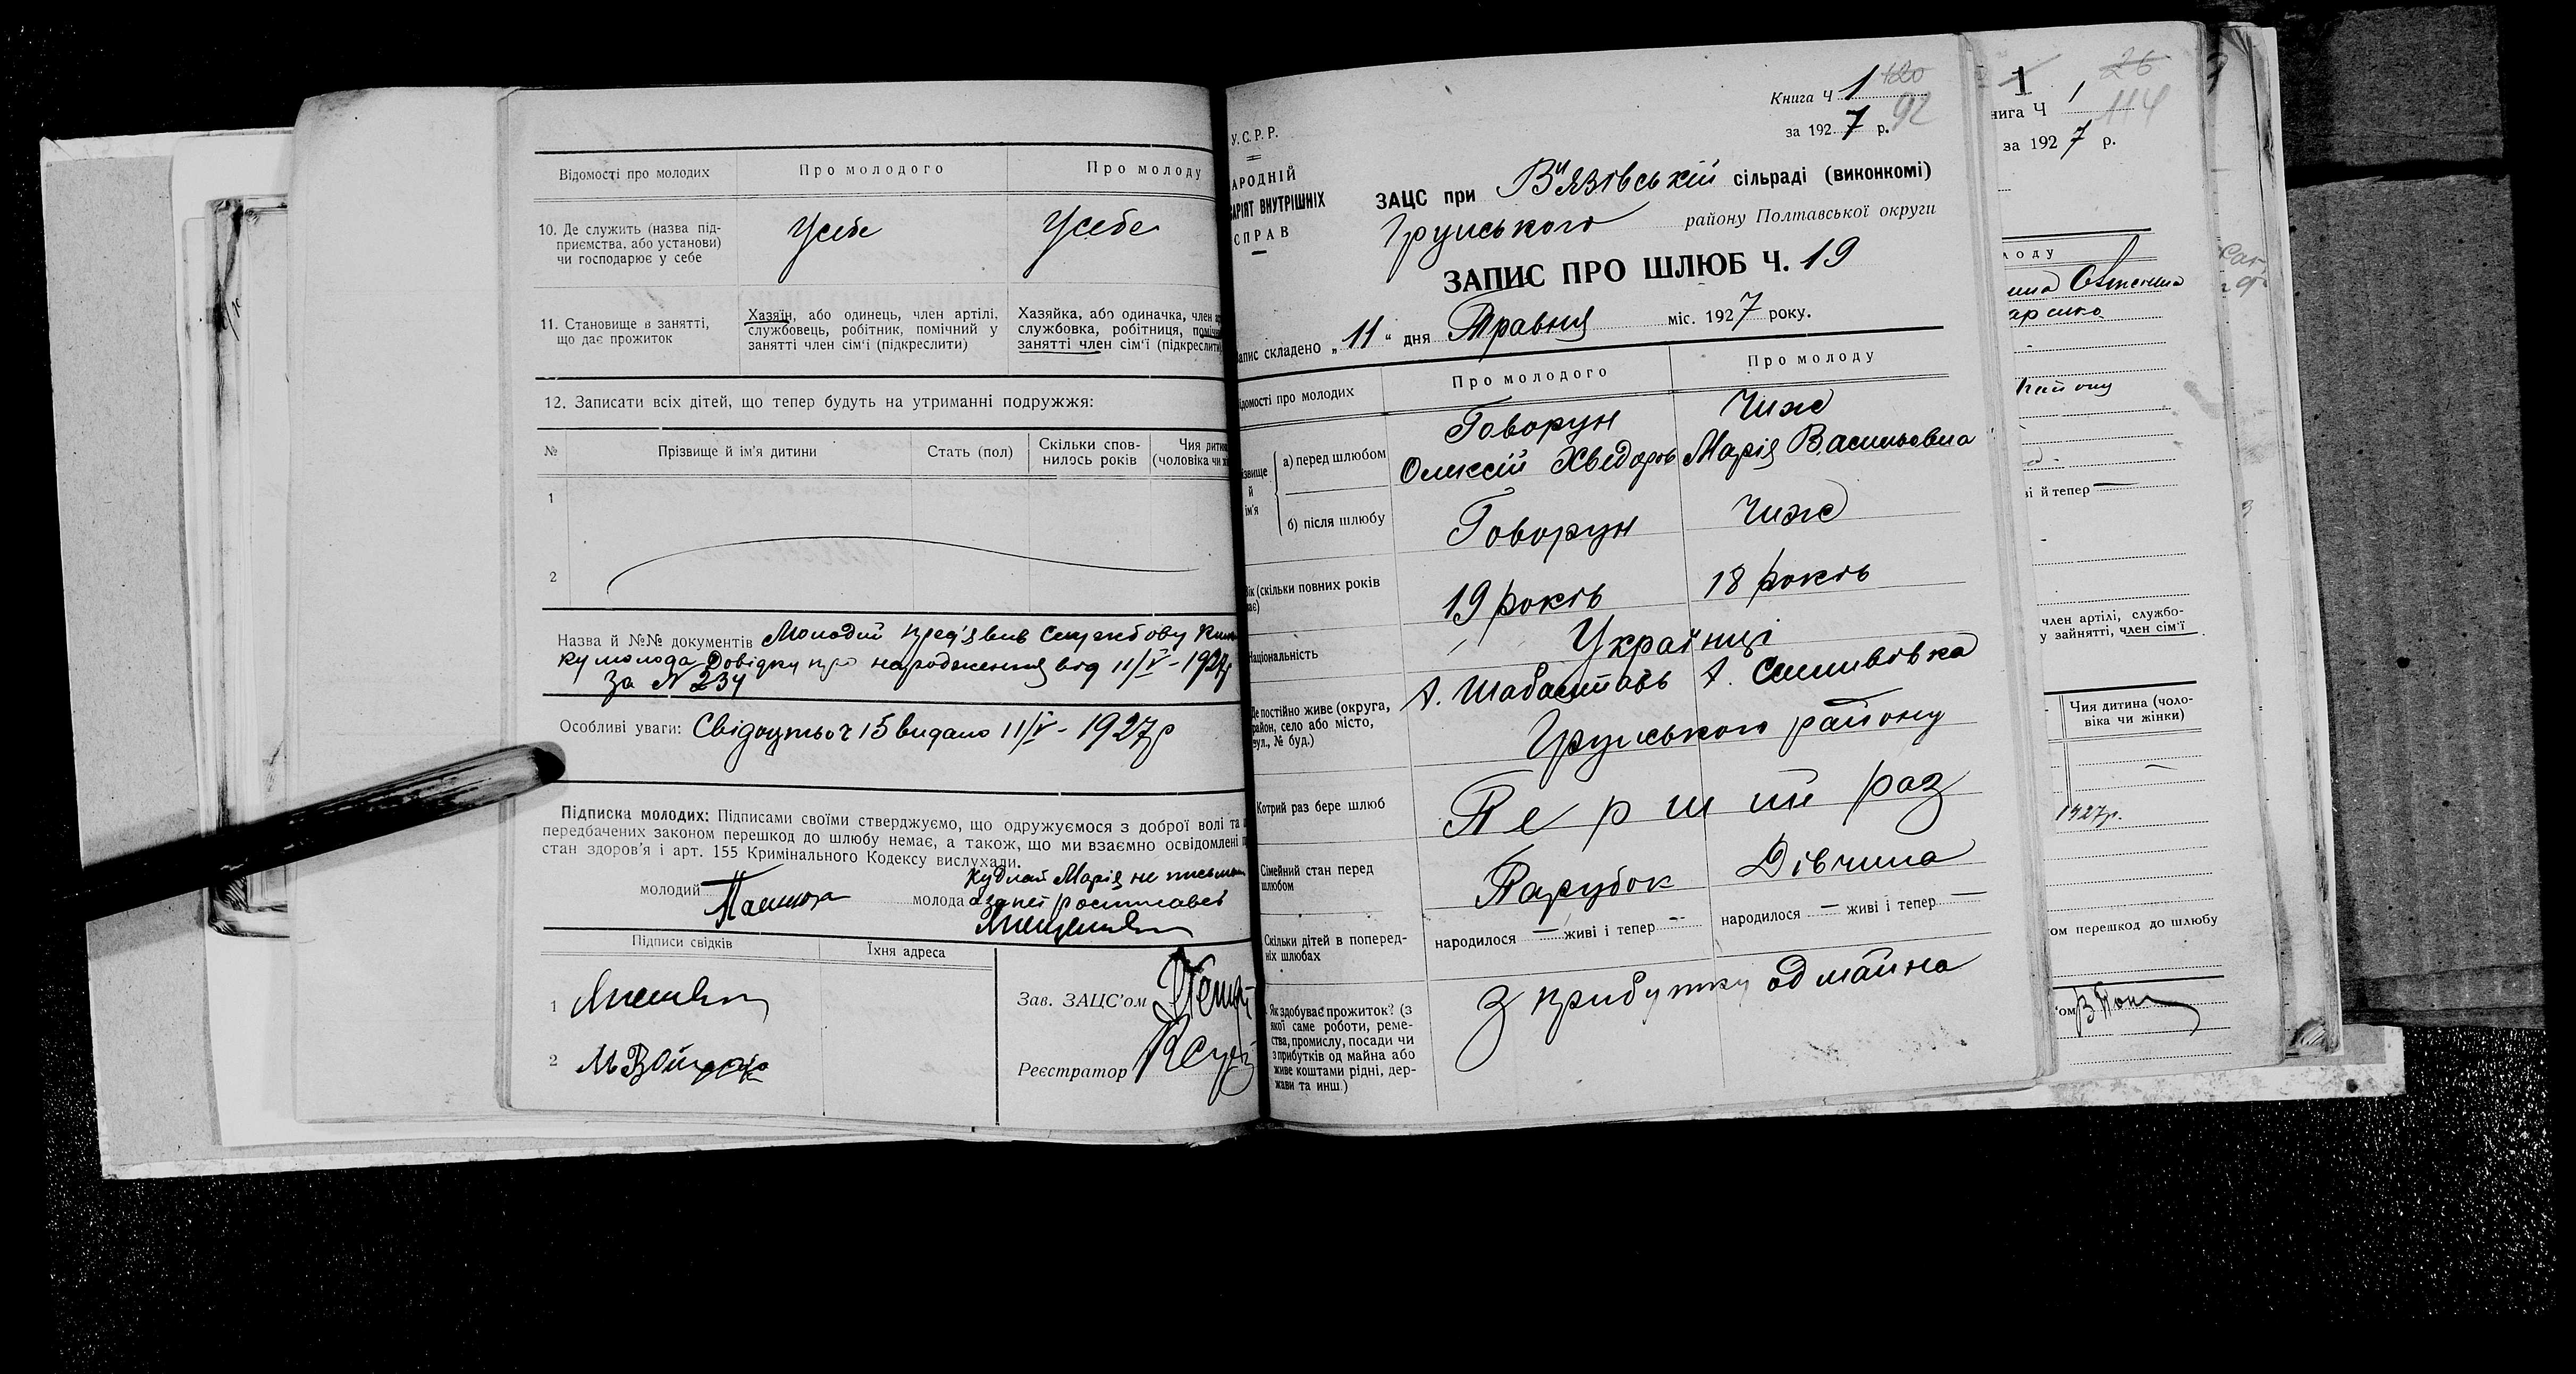 Відомості про молодих
Про молодого
Про молоду
10. Де служить (назва під-
приємства, або установи)
чи господарює у себе
Усебе
Усебе
11. Становище в занятті,
що дає прожиток
Хазяїн, або одинець, член артілі,
службовець, робітник, помічний у
занятті член сім'ї (підкреслити)
Хазяйка, або одиначка, член
службовка, робітниця,
занятті член сім'ї (підкреслити)
12. Записати всіх дітей, що тепер будуть на утриманні подружжя:
№
Прізвище й ім'я дитини
Стать (пол)
Скільки спов-
нилось років
Чия дитин
(чоловіка чи
1
2
Назва й №№ документів Молодий пред'явив Службову Книж
ку молода Довідку про народження від 11/V - 1927р
За № 234
Особливі уваги: Свідоцтво ч 15 видано 11/V - 1927р
Підписка молодих: Підписами своїми стверджуємо, що одружуємося з доброї волі та
передбачених законом перешкод до шлюбу немає, а також, що ми взаємно освідомлені
стан здоров'я і арт. 155 Кримінального Кодексу вислухали.
Кудлай Марія не письмен
молодий
молода а за неї росписавсь
Підписи свідків
Їхня адреса
1
2
Зав. ЗАЦС'ом
Реєстратор
Книга Ч 1 120
за 192 7 р. 92
У.С.Р.Р.
АРОДНІЙ
АРІЯТ ВНУТРІШНІХ
СПРАВ
ЗАЦС при В'язівській сільраді (виконкомі)
Грунського району Полтавської округи
ЗАПИС ПРО ШЛЮБ Ч. 19
апис складено „11“ дня Травня міс. 1927 року.
ідомості про молодих
Про молодого
Про молоду
ізвище
й
ім'я
а) перед шлюбом
Говорун
Олексій Хведоров
Чиж
Марія Васильовна
б) після шлюбу
Говорун
Чиж
Вік (скільки повних років
має)
19 років
18 років
Національність
Українці
Де постійно живе (округа,
район, село або місто,
вул., № буд.)
Х. Шабалтаєв
Грунського району
Котрий раз бере шлюб
Перший раз
Сімейний стан перед
шлюбом
Парубок
Дівчина
Скільки дітей в поперед-
ніх шлюбах
народилося — живі і тепер —
народилося — живі і тепер —
Як здобуває прожиток? (з
якої саме роботи, реме-
ства, промислу, посади чи
з прибутків од майна або
живе коштами рідні, дер-
жави та инш.)
З прибутку од майна
1
26
нига Ч 1
114
за 192 7 р.
лоду
району
ві й тепер —
член артілі, службо-
у зайнятті, член сім'ї
Чия дитина (чоло-
віка чи жінки)
1927р.
ом перешкод до шлюбу
'ом